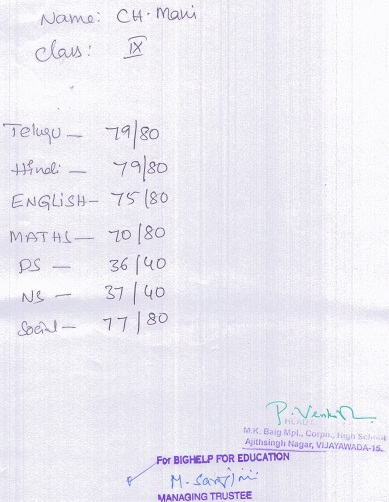 Name: CH. Mani
Class: IX
Telugu — 79/80
Hindi — 79/80
ENGLISH — 75/80
MATHS — 70/80
PS — 36/40
NS — 37/40
Social — 77/80
HEAD
M.K. Baig Mpl., Corpn., High School
Ajithsingh Nagar, VIJAYAWADA-15.
For BIGHELP FOR EDUCATION
M. Sarojini
MANAGING TRUSTEE